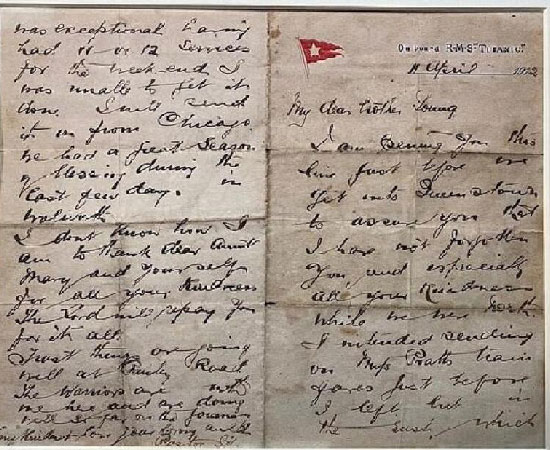 On board R.M.S. "Titanic".
11 April 1912
My dear brother Young
I am penning you this
line just before we
get into Queenstown
to assure you that
I have not forgotten
you and especially
all your kindness
while we were North
I intended sending
on Pratts train
fares just before
I left but in
the rush, which
was exceptional having
had 11 or 12 services
for the week end I
was unable to get it
done. I will send
it on from Chicago
We had a great season
of blessing during the
last few days in
Walworth.
I dont know how I
am to thank dear Aunt
Mary and yourself
for all your kindness
The Lord will repay you
for it all.
Trust things are going
well at Paisley Road
The Warriors are with
me here and are doing
well so far on the journey
love your loving auld
Pastor